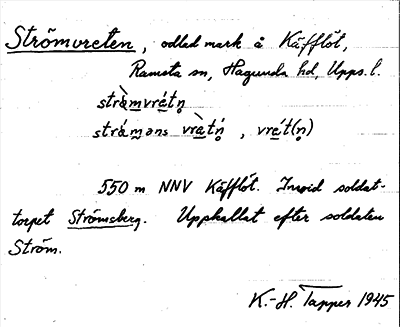 Strömvreten, odlad mark å Käfflöt,
Ramsta sn, Hagunda hd, Upps. l.
550 m NNV Käfflöt. Invid soldat-
torpet Strömsberg. Uppkallat efter soldaten
Ström.
K.-H. Tapper 1945